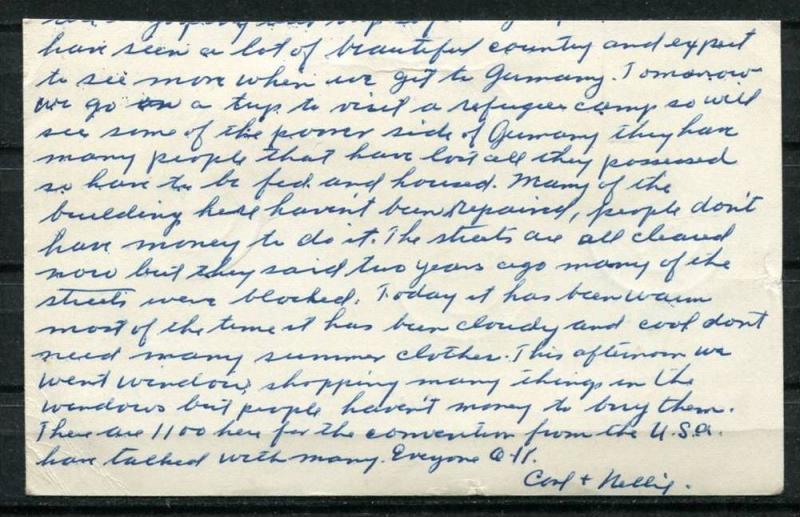 have seen a lot of beautiful country and expect
to see more when we get to Germany. Tomorrow
we go on a trip to visit a refugee camp so will
see some of the poorer side of Germany they have
many people that have lost all they possessed
so have to be fed and housed. Many of the
buildings here haven't been repaired, people don't
have money to do it. The streets are all cleared
now but they said two years ago many of the
streets were blocked. Today it has been warm
most of the time it has been cloudy and cool don't
need many summer clothes. This afternoon we
went window shopping many things in the
windows but people haven't money to buy them.
There are 1100 here for the convention from the U.S.A.
have talked with many. Everyone O.K.
Carl + Nellie.